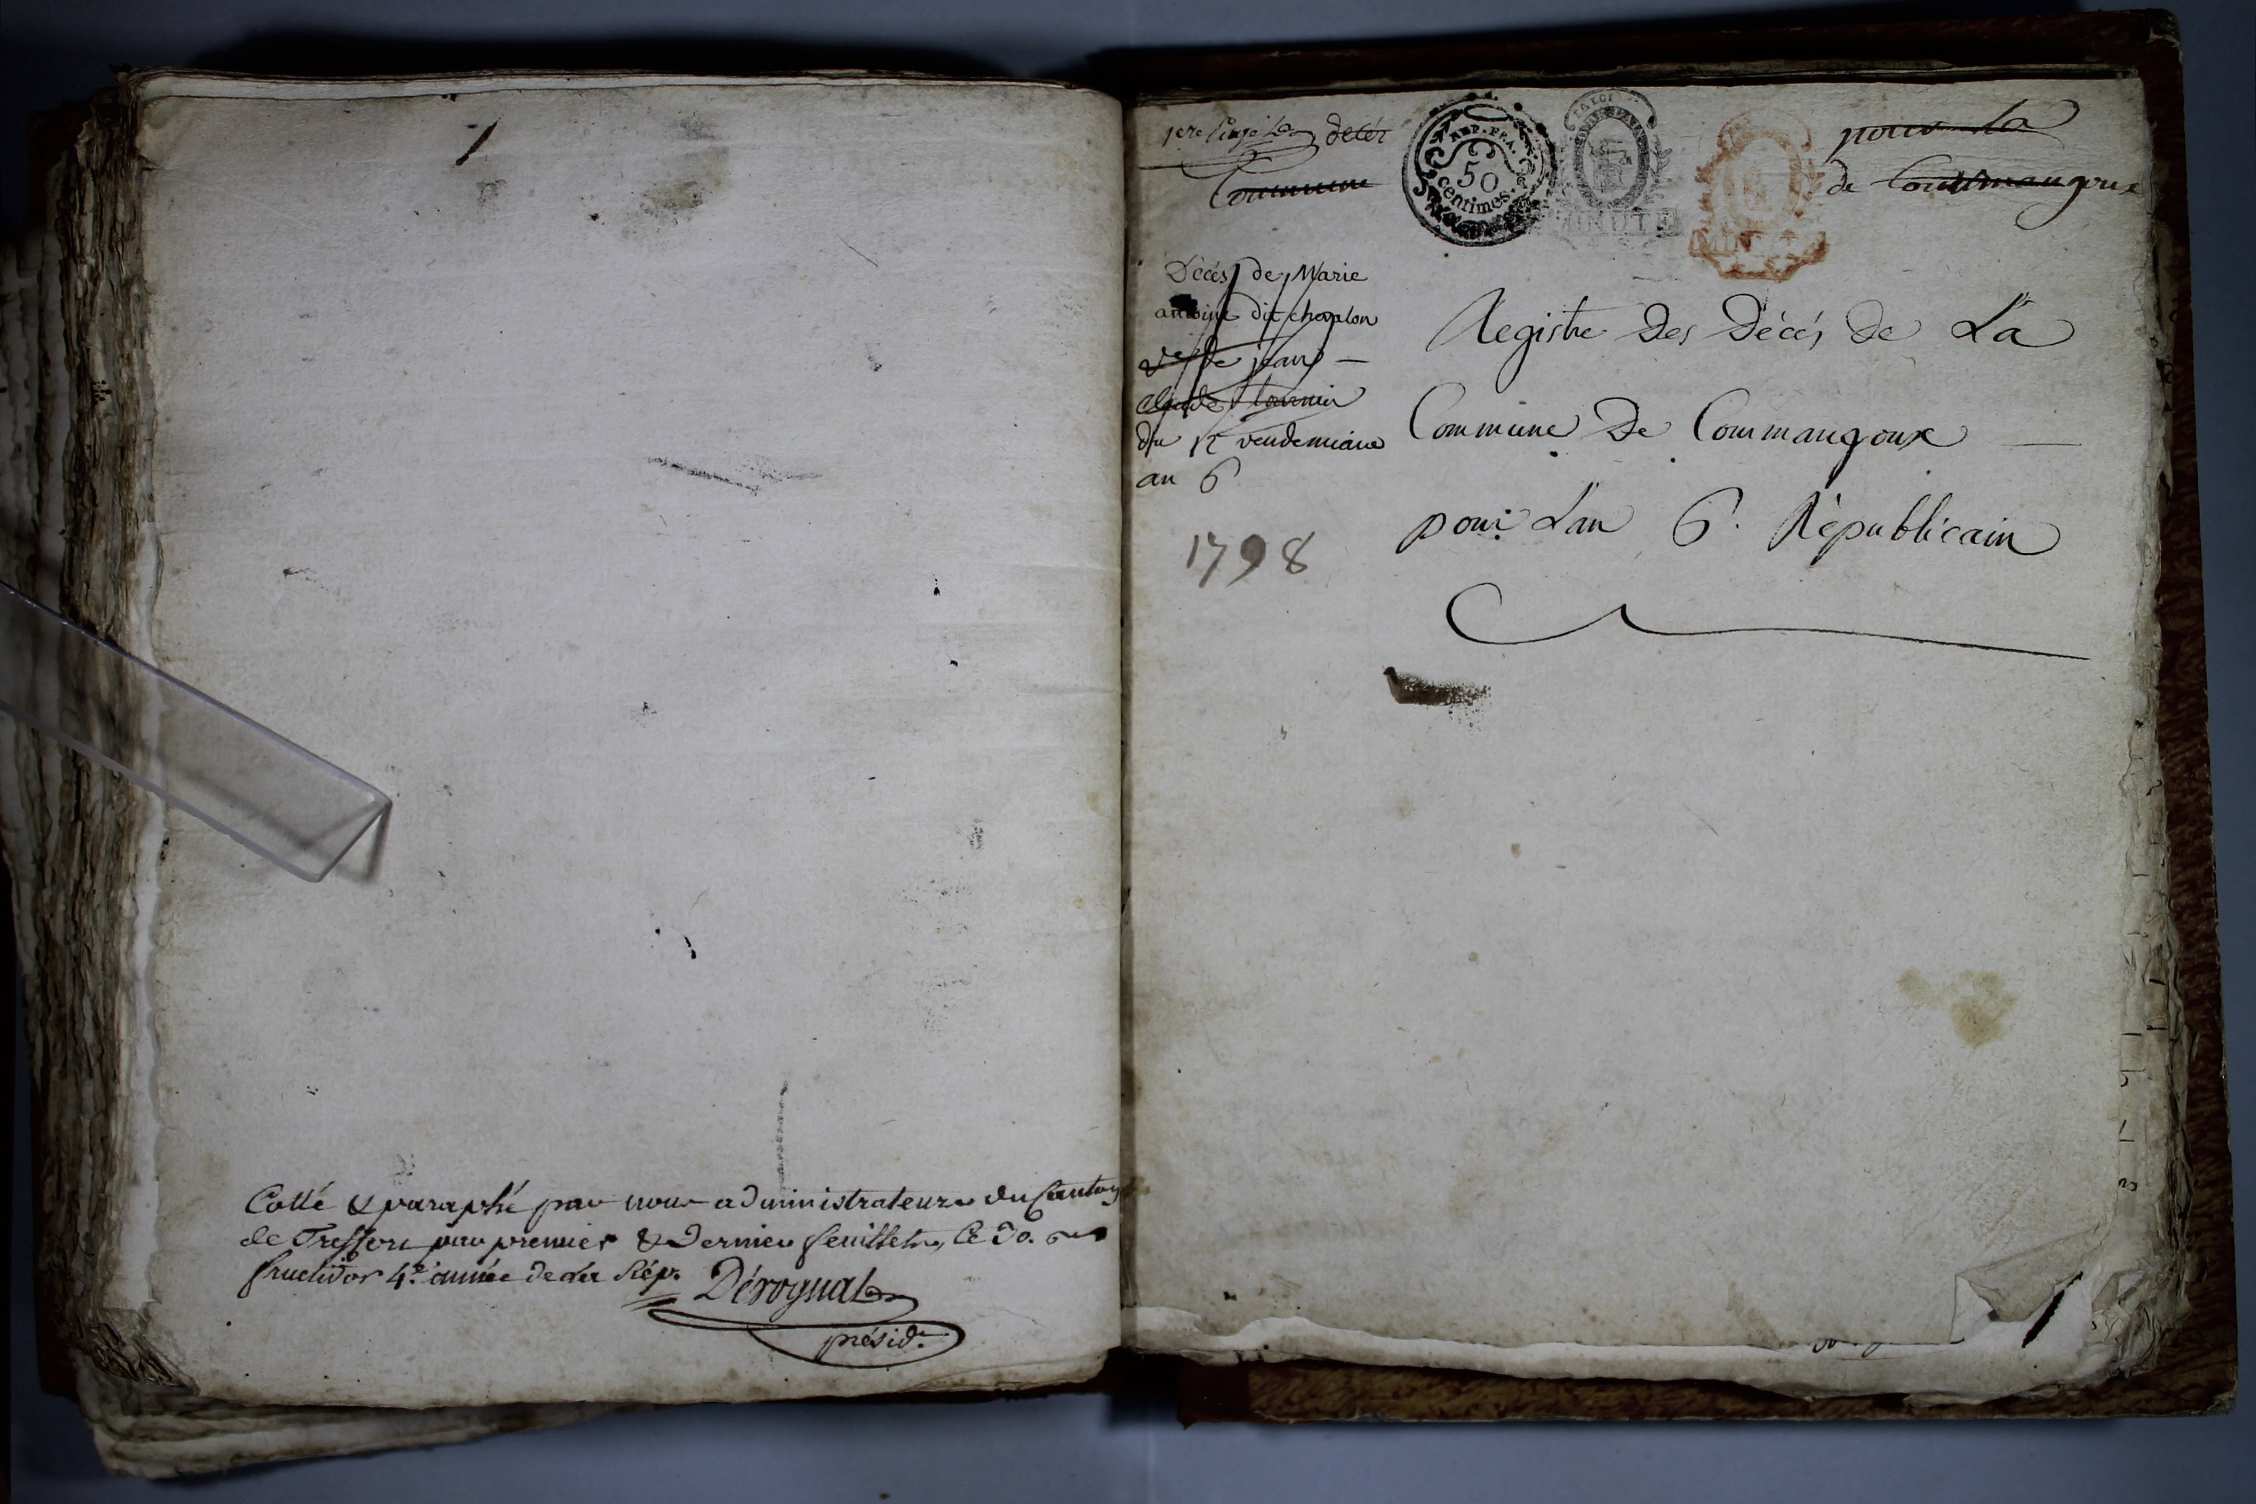 Cotté & paraphé par nous administrateurs du Canton
de Treffort par premier & Dernier feuillets, Ce 30.
fructidor 4.e année de La Rép.
Dérognat
présid.t
décès
pour La
Commune
de Courmangoux
REP. FRA.
50
centimes.
LA LOI
MINUTE
Décès de Marie
antoine dit chaplon
ve de jean
Claude tournier
du 12 vendemiaire
an 6
1798
Registre Des Décés De La
Commune De Courmangoux
pour L'an 6. Républicain